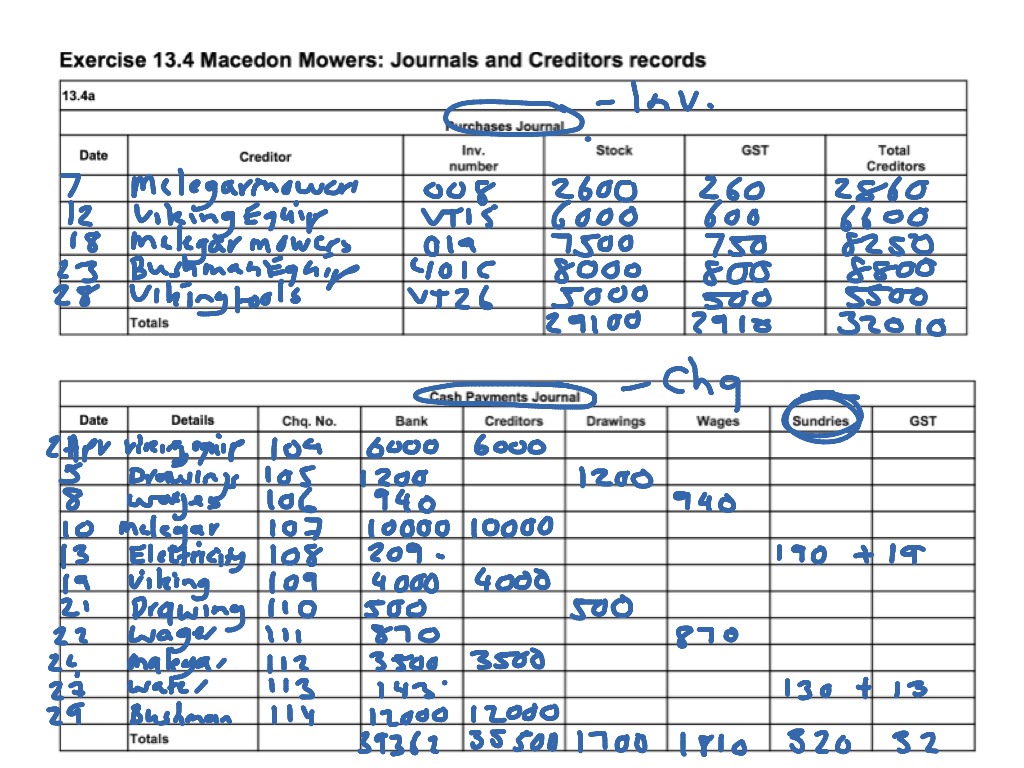 Exercise 13.4 Macedon Mowers: Journals and Creditors records
13.4a – Inv.
Purchases Journal
Date Creditor Inv. number Stock GST Total Creditors
7 Melegar mowers 008 2600 260 2860
12 Viking Equip VT15 6000 600 6600
18 Melegar mowers 019 7500 750 8250
23 Bushman Equip 401C 8000 800 8800
28 Viking tools VT26 5000 500 5500
Totals 29100 2910 32010
– Chq
Cash Payments Journal
Date Details Chq. No. Bank Creditors Drawings Wages Sundries GST
2 Apr viking equip 104 6000 6000
5 Drawings 105 1200 1200
8 Wages 106 940 940
10 Melegar 107 10000 10000
13 Elettricity 108 209 190 + 19
19 Viking 109 4000 4000
21 Drawing 110 500 500
22 Wages 111 870 870
Malegar 112 3500 3500
27 Water 113 143 130 + 13
29 Bushman 114 12000 12000
Totals 39362 35500 1700 1810 320 32